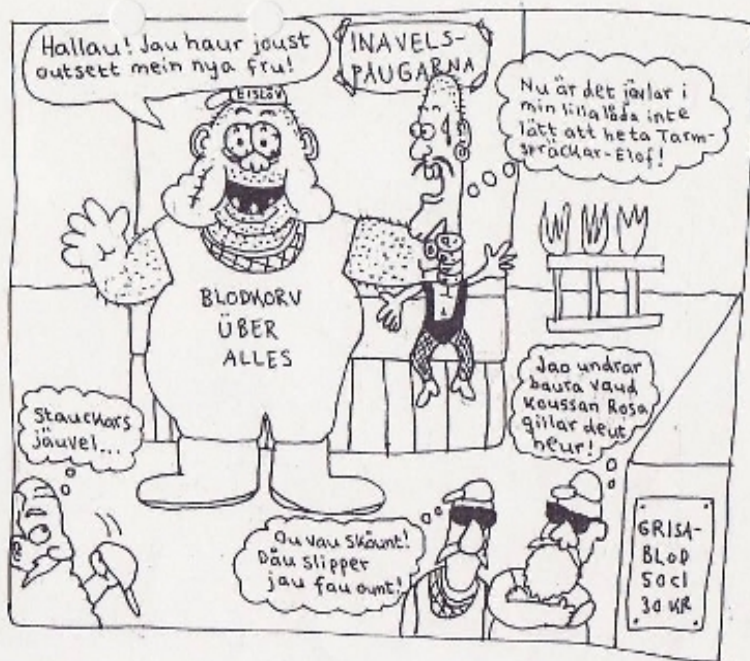 Hallau! Jau haur joust
outsett mein nya fru!
INAVELS-
PAUGARNA
EISLÖV
Nu är det jävlar i
min lilla låda inte
lätt att heta Tarm-
spräckar-Elof!
BLODKORV
ÜBER
ALLES
Jao undrar
baura vaud
koussan Rosa
gillar deut
heur!
Stauckors
jäuvel...
Ou vau skåunt!
Dåu slipper
jau fau ount!
GRISA-
BLOD
50 cl
30 KR